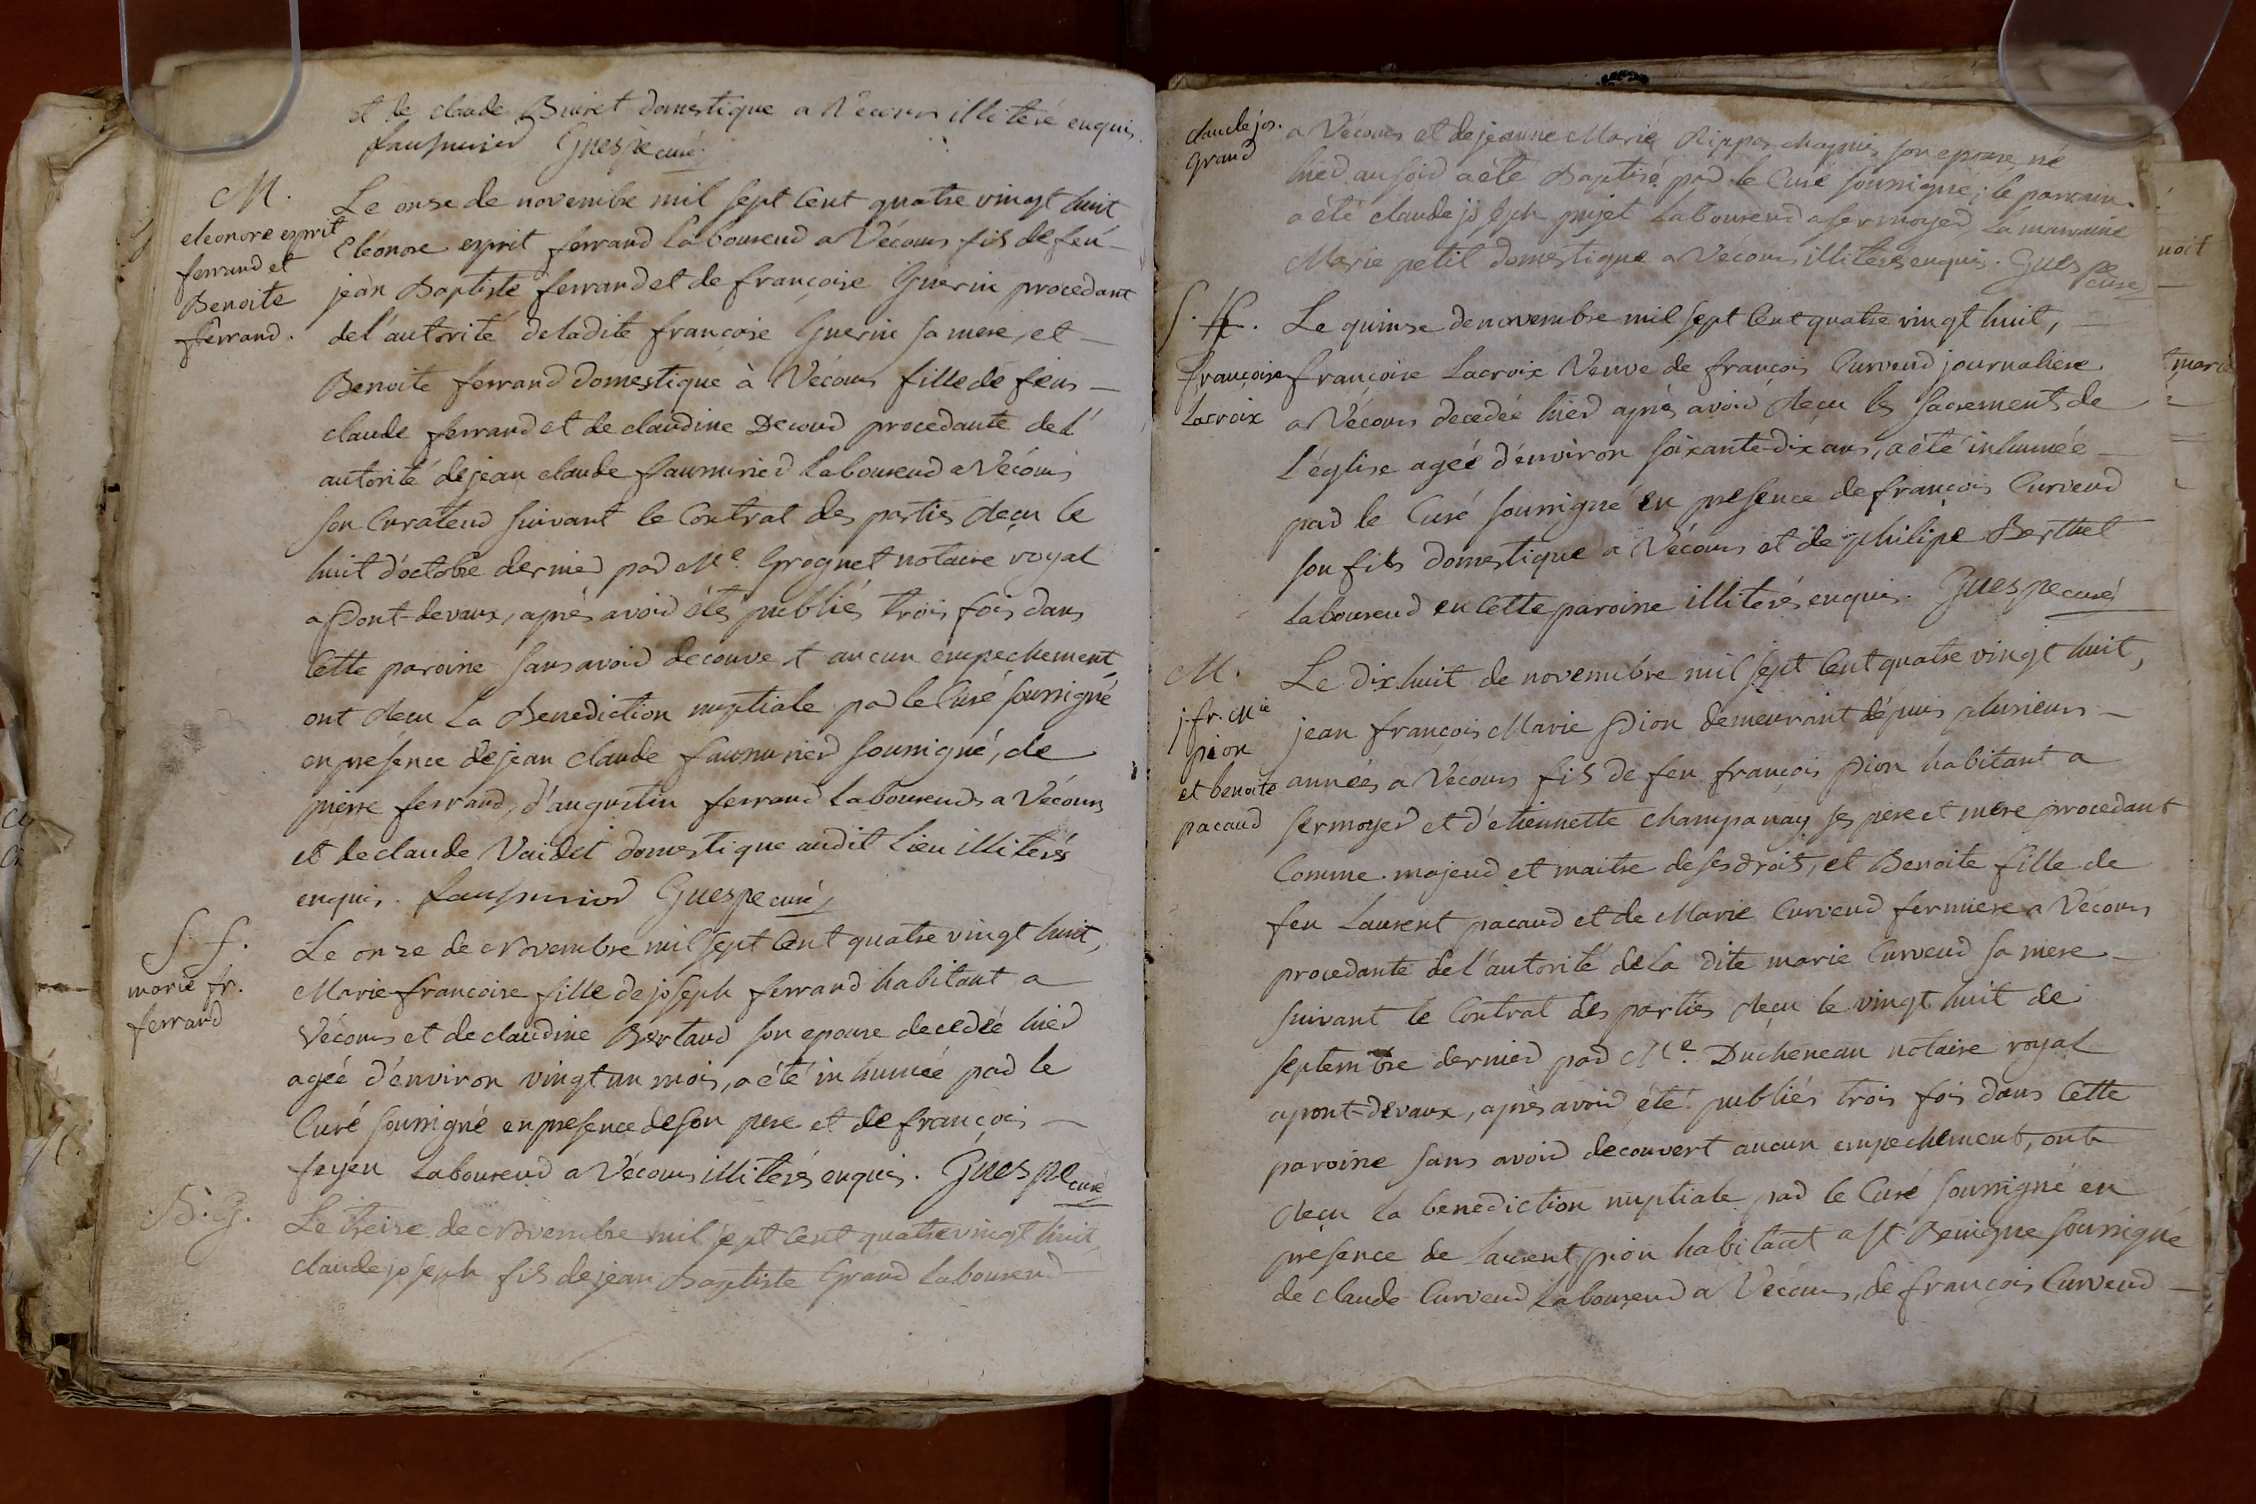 et de claude Buiret domestique a Vécours illiteré enquis.
faussurier Guespe curé
M.
eleonore esprit
ferrand et
Benoite
ferrand.
Le onze de novembre mil sept cent quatre vingt huit
Eléonore esprit ferrand laboureur a Vécours fils de feu
jean Baptiste ferrand et de françoise Guerin procedant
de l'autorité de ladite françoise Guerin sa mere, et
Benoite ferrand domestique à Vécours fille de feus
claude ferrand et de claudine Decour procedante de l'
autorité de jean claude faussurier laboureur a Vécours
son Curateur suivant le Contrat des parties reçu le
huit d'octobre dernier par Me. Grognet notaire royal
a Pont-devaux, après avoir étés publiés trois fois dans
cette paroisse sans avoir decouvert aucun empechement,
ont reçu la Benediction nuptiale par le Curé soussigné
en présence de jean claude faussurier soussigné, de
pierre ferrand, d'augustin ferrand laboureurs a Vécours
et de claude Vaidet domestique audit lieu illiterés
enquis. faussurier Guespe curé
S. f.
marie fr.
ferrand
Le onze de Novembre mil sept Cent quatre vingt huit,
Marie françoise fille de joseph ferrand habitant a
Vécours et de claudine Bertaud son epouse decedée hier
ageé d'environ vingt un mois, a été inhumée par le
Curé soussigné en presence de son pere et de françois
feyeu laboureur a Vécours illiterés enquis. Guespe curé
B. G.
Le treise de Novembre mil sept Cent quatre vingt huit
claude joseph fils de jean Baptiste Grand laboureur
claude jos.
grand
a Vécours et de jeanne Marie Rippes chapuis son epouse, né
hier au soir a été Baptisé par le Curé soussigné; le parrain
a été claude joseph pujet laboureur a sermoyer, la marraine
Marie petit domestique a Vécours illiterés enquis. Guespe
curé
S. H.
françoise
Lacroix
Le quinse de novembre mil sept Cent quatre vingt huit,
françoise Lacroix Veuve de françois Curveur journaliere
a Vécours decedée hier après avoir reçu les sacrements de
l'église ageé d'environ soixante-dix ans, a été inhumée
par le Curé soussigné en presence de françois Curveur
son fils domestique a Vécours et de philipe Berthet
laboureur en cette paroisse illiterés enquis. Guespe curé
M.
j. fr. Mie
pion
et benoite
pacaud
Le dix huit de novembre mil sept Cent quatre vingt huit,
jean françois Marie Pion demeurant dépuis plusieurs
années a Vécours fils de feu françois Pion habitant a
sermoyer et d'etiennette champanay ses pere et mere procedant
Comme majeur et maitre de ses droits, et Benoite fille de
feu Laurent pacaud et de Marie Curveur fermiere a Vécours
procedante de l'autorité de la dite marie Curveur sa mere
suivant le Contrat des parties reçu le vingt huit de
septembre dernier par Me. Ducheneau notaire royal
a pont-devaux, après avoir été publiés trois fois dans cette
paroisse sans avoir découvert aucun empechement, ont
reçu la benediction nuptiale par le Curé soussigné en
présence de laurent pion habitant a St Benigne soussigné
de claude Curveur laboureur a Vécours, de françois Curveur